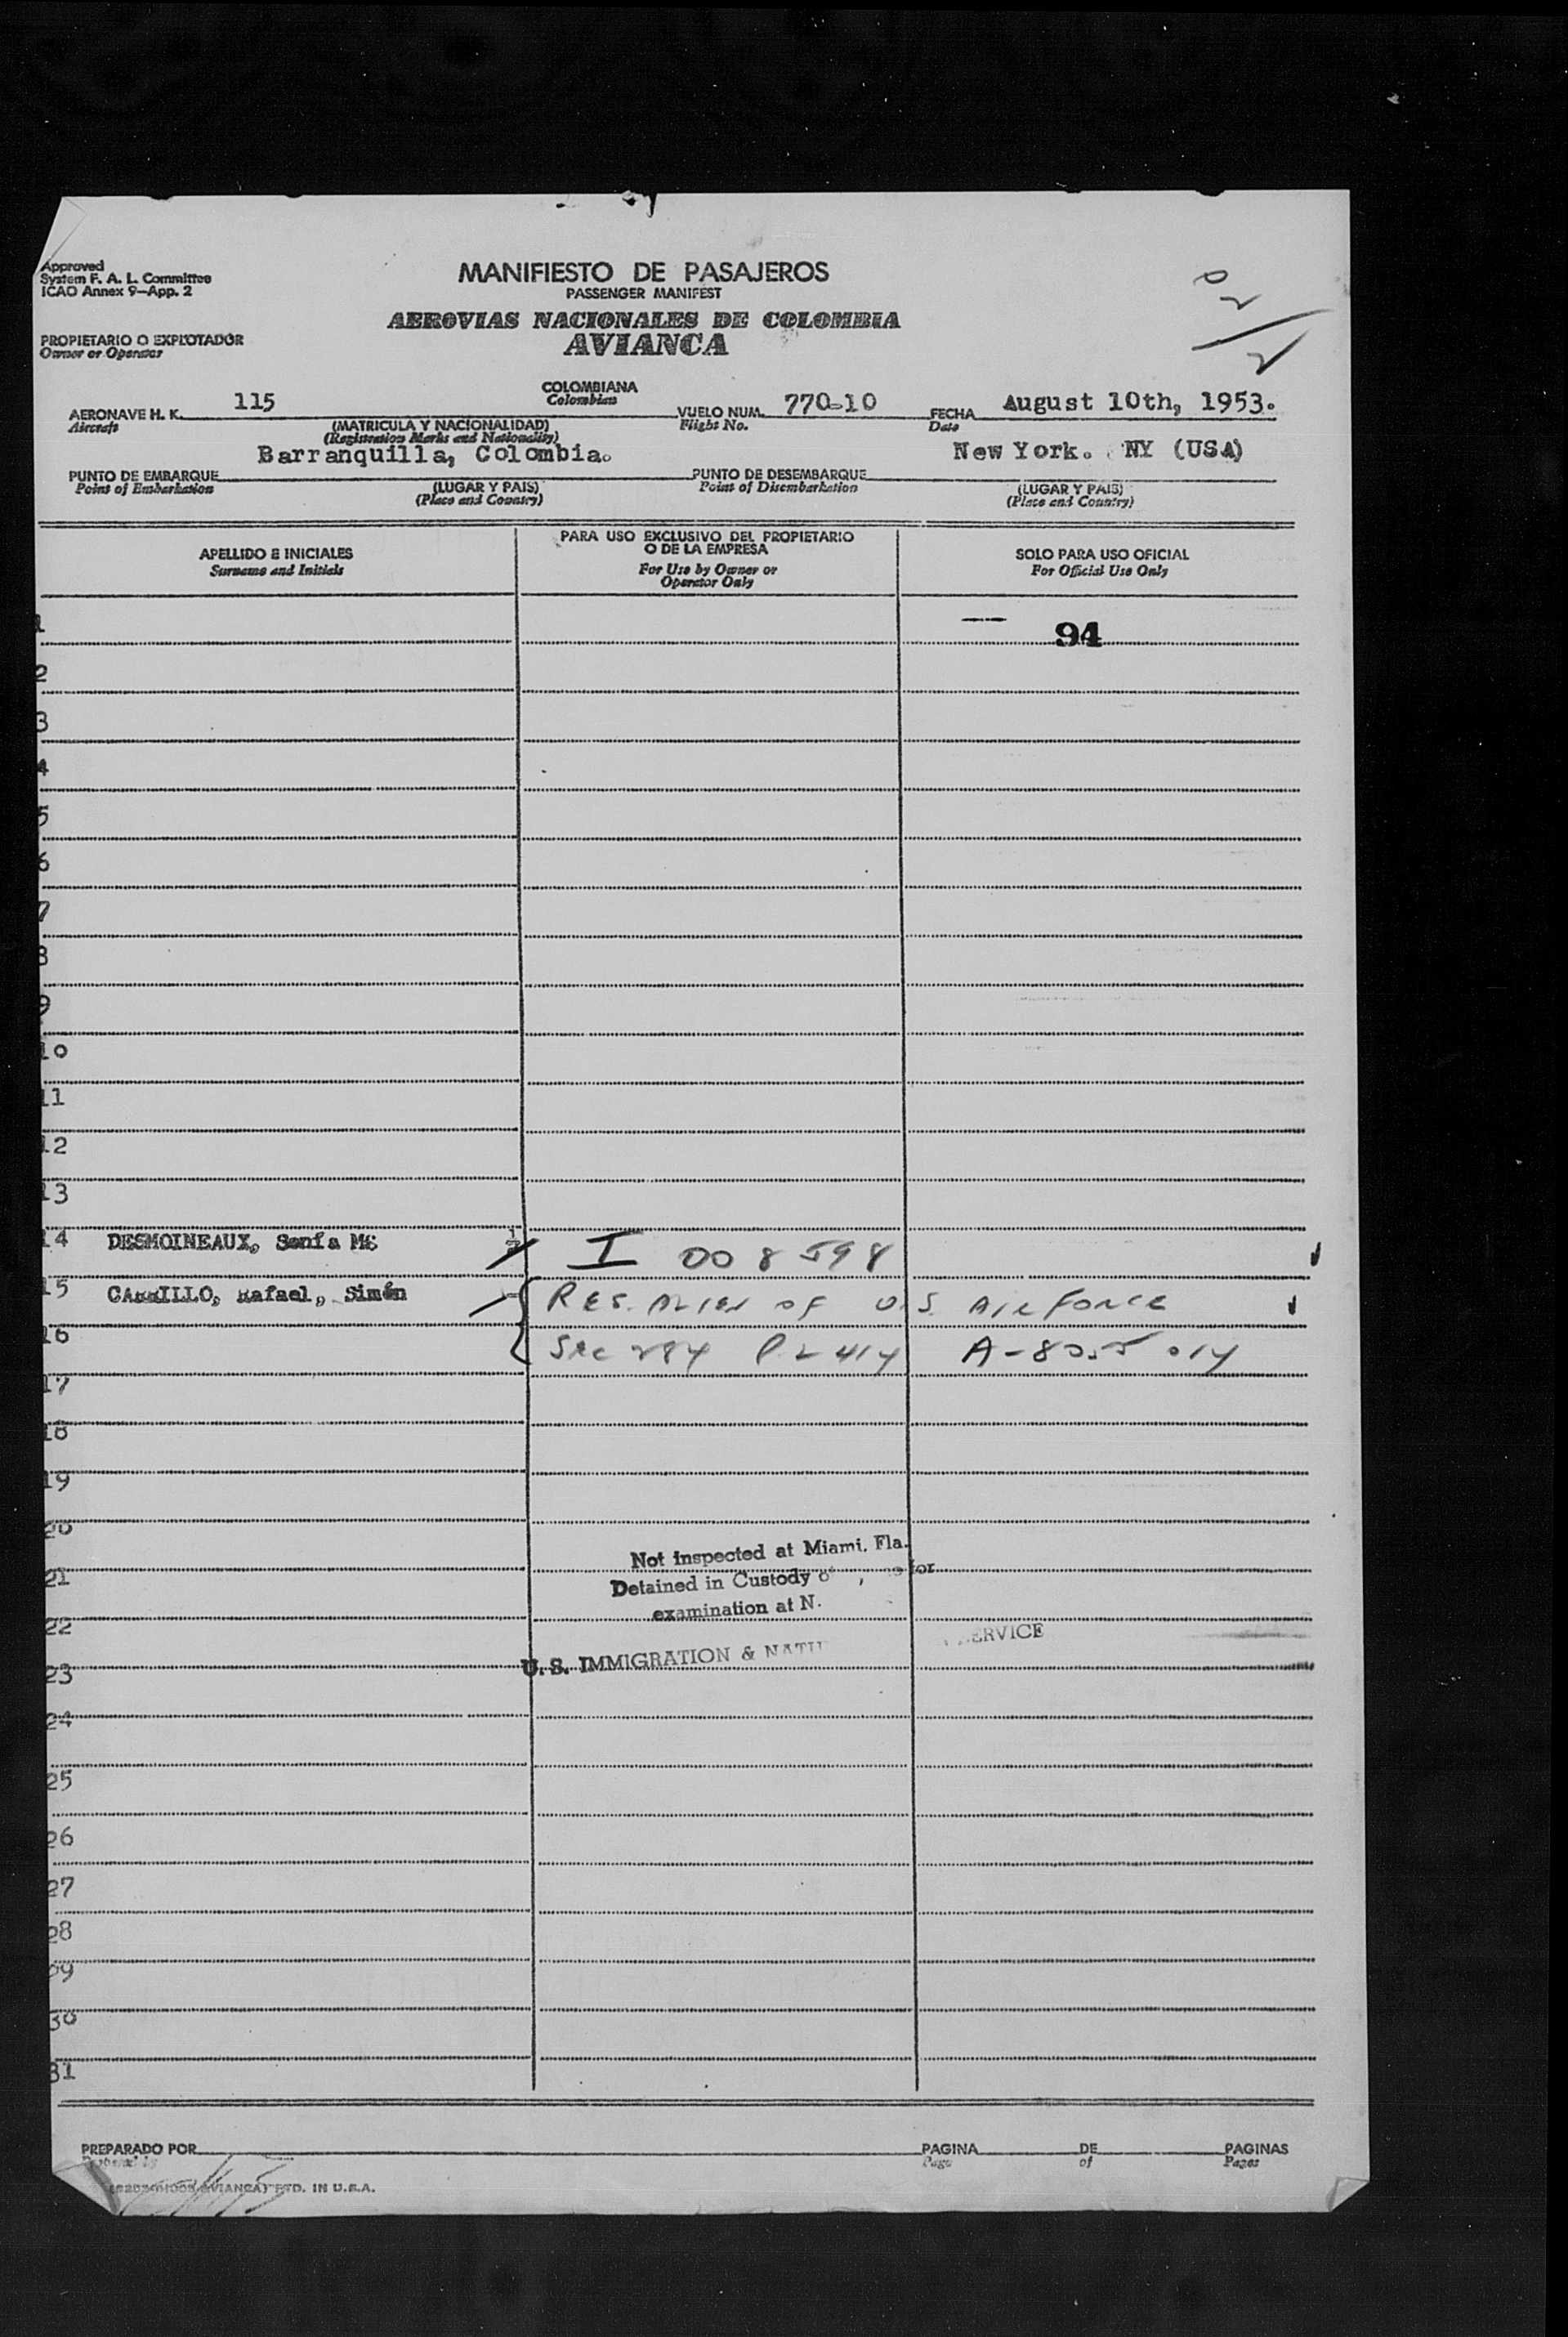 Approved
System F. A. L. Committee
ICAO Annex 9—App. 2
MANIFIESTO DE PASAJEROS
PASSENGER MANIFEST
AEROVIAS NACIONALES DE COLOMBIA
AVIANCA
PROPIETARIO O EXPLOTADOR
Owner or Operator
AERONAVE H. K. 115 COLOMBIANA VUELO NUM. 770-10 FECHA August 10th, 1953.
Aircraft Colombian Flight No. Date
(MATRICULA Y NACIONALIDAD)
(Registration Marks and Nationality)
Barranquilla, Colombia. New York. NY (USA)
PUNTO DE EMBARQUE PUNTO DE DESEMBARQUE
Point of Embarkation (LUGAR Y PAIS) Point of Disembarkation (LUGAR Y PAIS)
(Place and Country) (Place and Country)
APELLIDO E INICIALES
Surname and Initials
PARA USO EXCLUSIVO DEL PROPIETARIO
O DE LA EMPRESA
For Use by Owner or
Operator Only
SOLO PARA USO OFICIAL
For Official Use Only
1 94
2
3
4
5
6
7
8
9
10
11
12
13
14 DESMOINEAUX, Sonía I 008598
15 CARRILLO, Rafael, Simón RES. ALIEN OF U.S. AIR FORCE
16 Sec 284 P L 414 A-8055 014
17
18
19
20
Not inspected at Miami, Fla.
21 Detained in Custody for
examination at N.
22 SERVICE
23 U. S. IMMIGRATION &
24
25
26
27
28
29
30
31
PREPARADO POR PAGINA DE PAGINAS
Prepared by Page of Pages
AVIANCA) PTD. IN U.S.A.